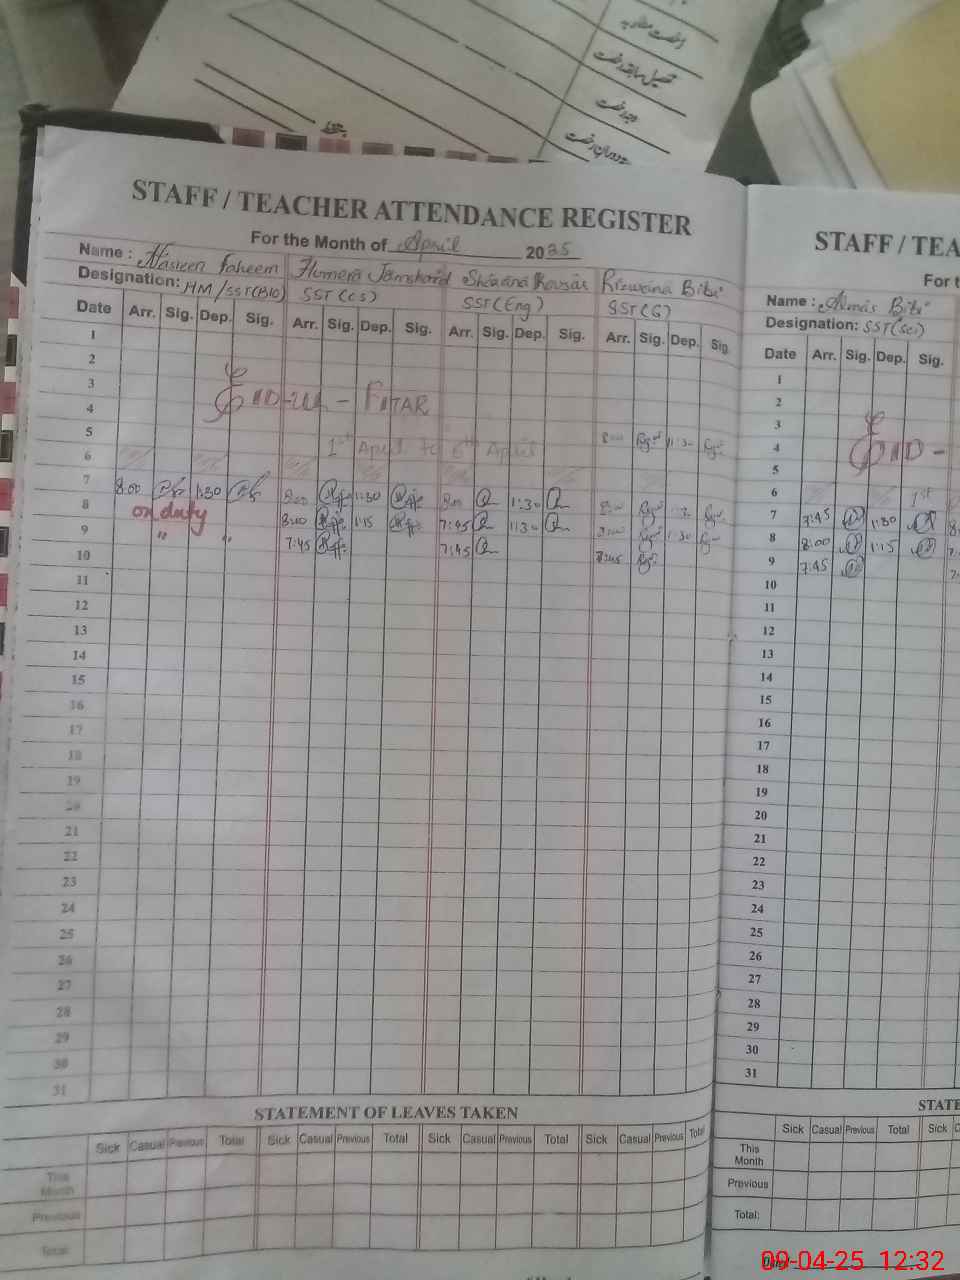 رخصت مطلوبہ
تفصیل سابقہ رخصت
وجہ رخصت
STAFF / TEACHER ATTENDANCE REGISTER
For the Month of April 2025
Name : Nasreen Faheem Humera Jamshaid Shazana Kousar Rizwana Bibi
Designation: HM/SST(BIO) SST(CS) SST(Eng) SST(G)
Date Arr. Sig. Dep. Sig. Arr. Sig. Dep. Sig. Arr. Sig. Dep. Sig. Arr. Sig. Dep. Sig.
1
2
3
4 EID-UL-FITAR
5 1st April to 6th April 8:00 11:30
6
7 8:00 1:30 8:00 1:30 8:00 1:30 8:00 1:30
8 on duty 8:00 1:15 7:45 1:30 8:00 1:30
9 " " 7:45 7:45 7:45
10
11
12
13
14
15
16
17
18
19
20
21
22
23
24
25
26
27
28
29
30
31
STATEMENT OF LEAVES TAKEN
Sick Casual Previous Total Sick Casual Previous Total Sick Casual Previous Total Sick Casual Previous Total
This Month
Previous
Total:
STAFF / TEA
For t
Name : Almas Bibi
Designation: SST(Sci)
Date Arr. Sig. Dep. Sig.
1
2
3
4 EID -
5
6 1st
7 7:45 1:30
8 8:00 1:15
9 7:45
10
11
12
13
14
15
16
17
18
19
20
21
22
23
24
25
26
27
28
29
30
31
STATE
Sick Casual Previous Total Sick
This Month
Previous
Total:
09-04-25 12:32